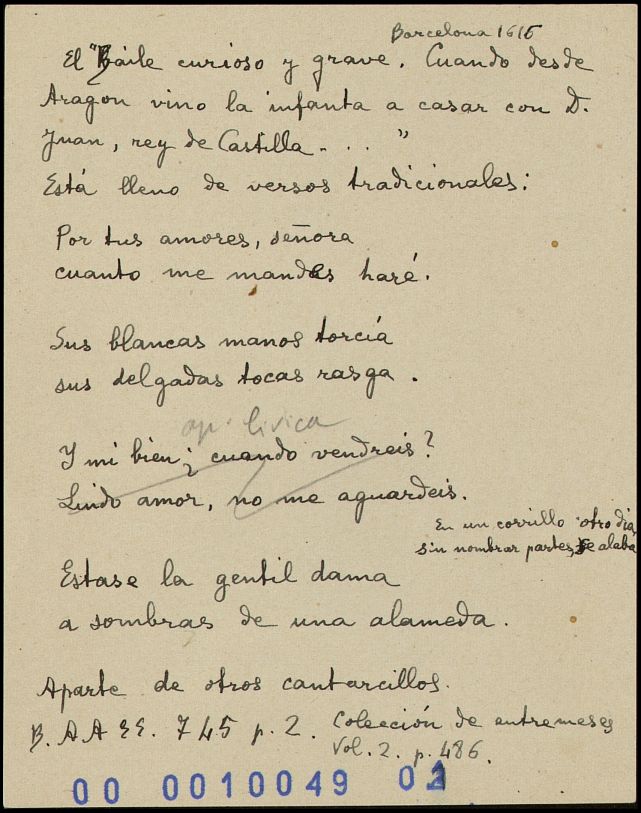 Barcelona 1616
El "Baile curioso y grave. Cuando desde
Aragon vino la infanta a casar con D.
Juan, rey de Castilla . . . "
Está lleno de versos tradicionales:
Por tus amores, señora
cuanto me mandes haré.
Sus blancas manos torcía
sus delgadas tocas rasga.
ap. lívica
Y mi bien ¿ cuando vendreis?
Lindo amor, no me aguardeis.
En un corrillo otro dia
sin nombrar partes, se alaba
Estase la gentil dama
a sombras de una alameda.
Aparte de otros cantarcillos.
B. A A E E. 745 p. 2. Colección de entremeses
Vol. 2. p. 486.
00 0010049 02